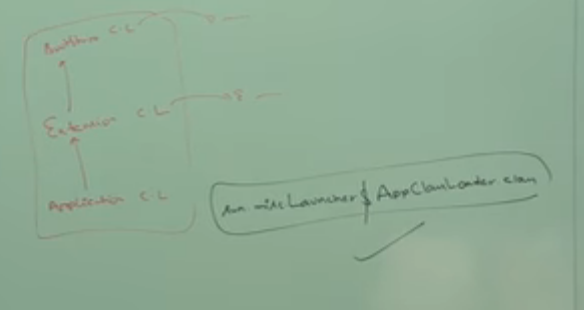 Bootstrap C.L
Extension C.L
Application C.L
sun.misc.Launcher$AppClassLoader.class